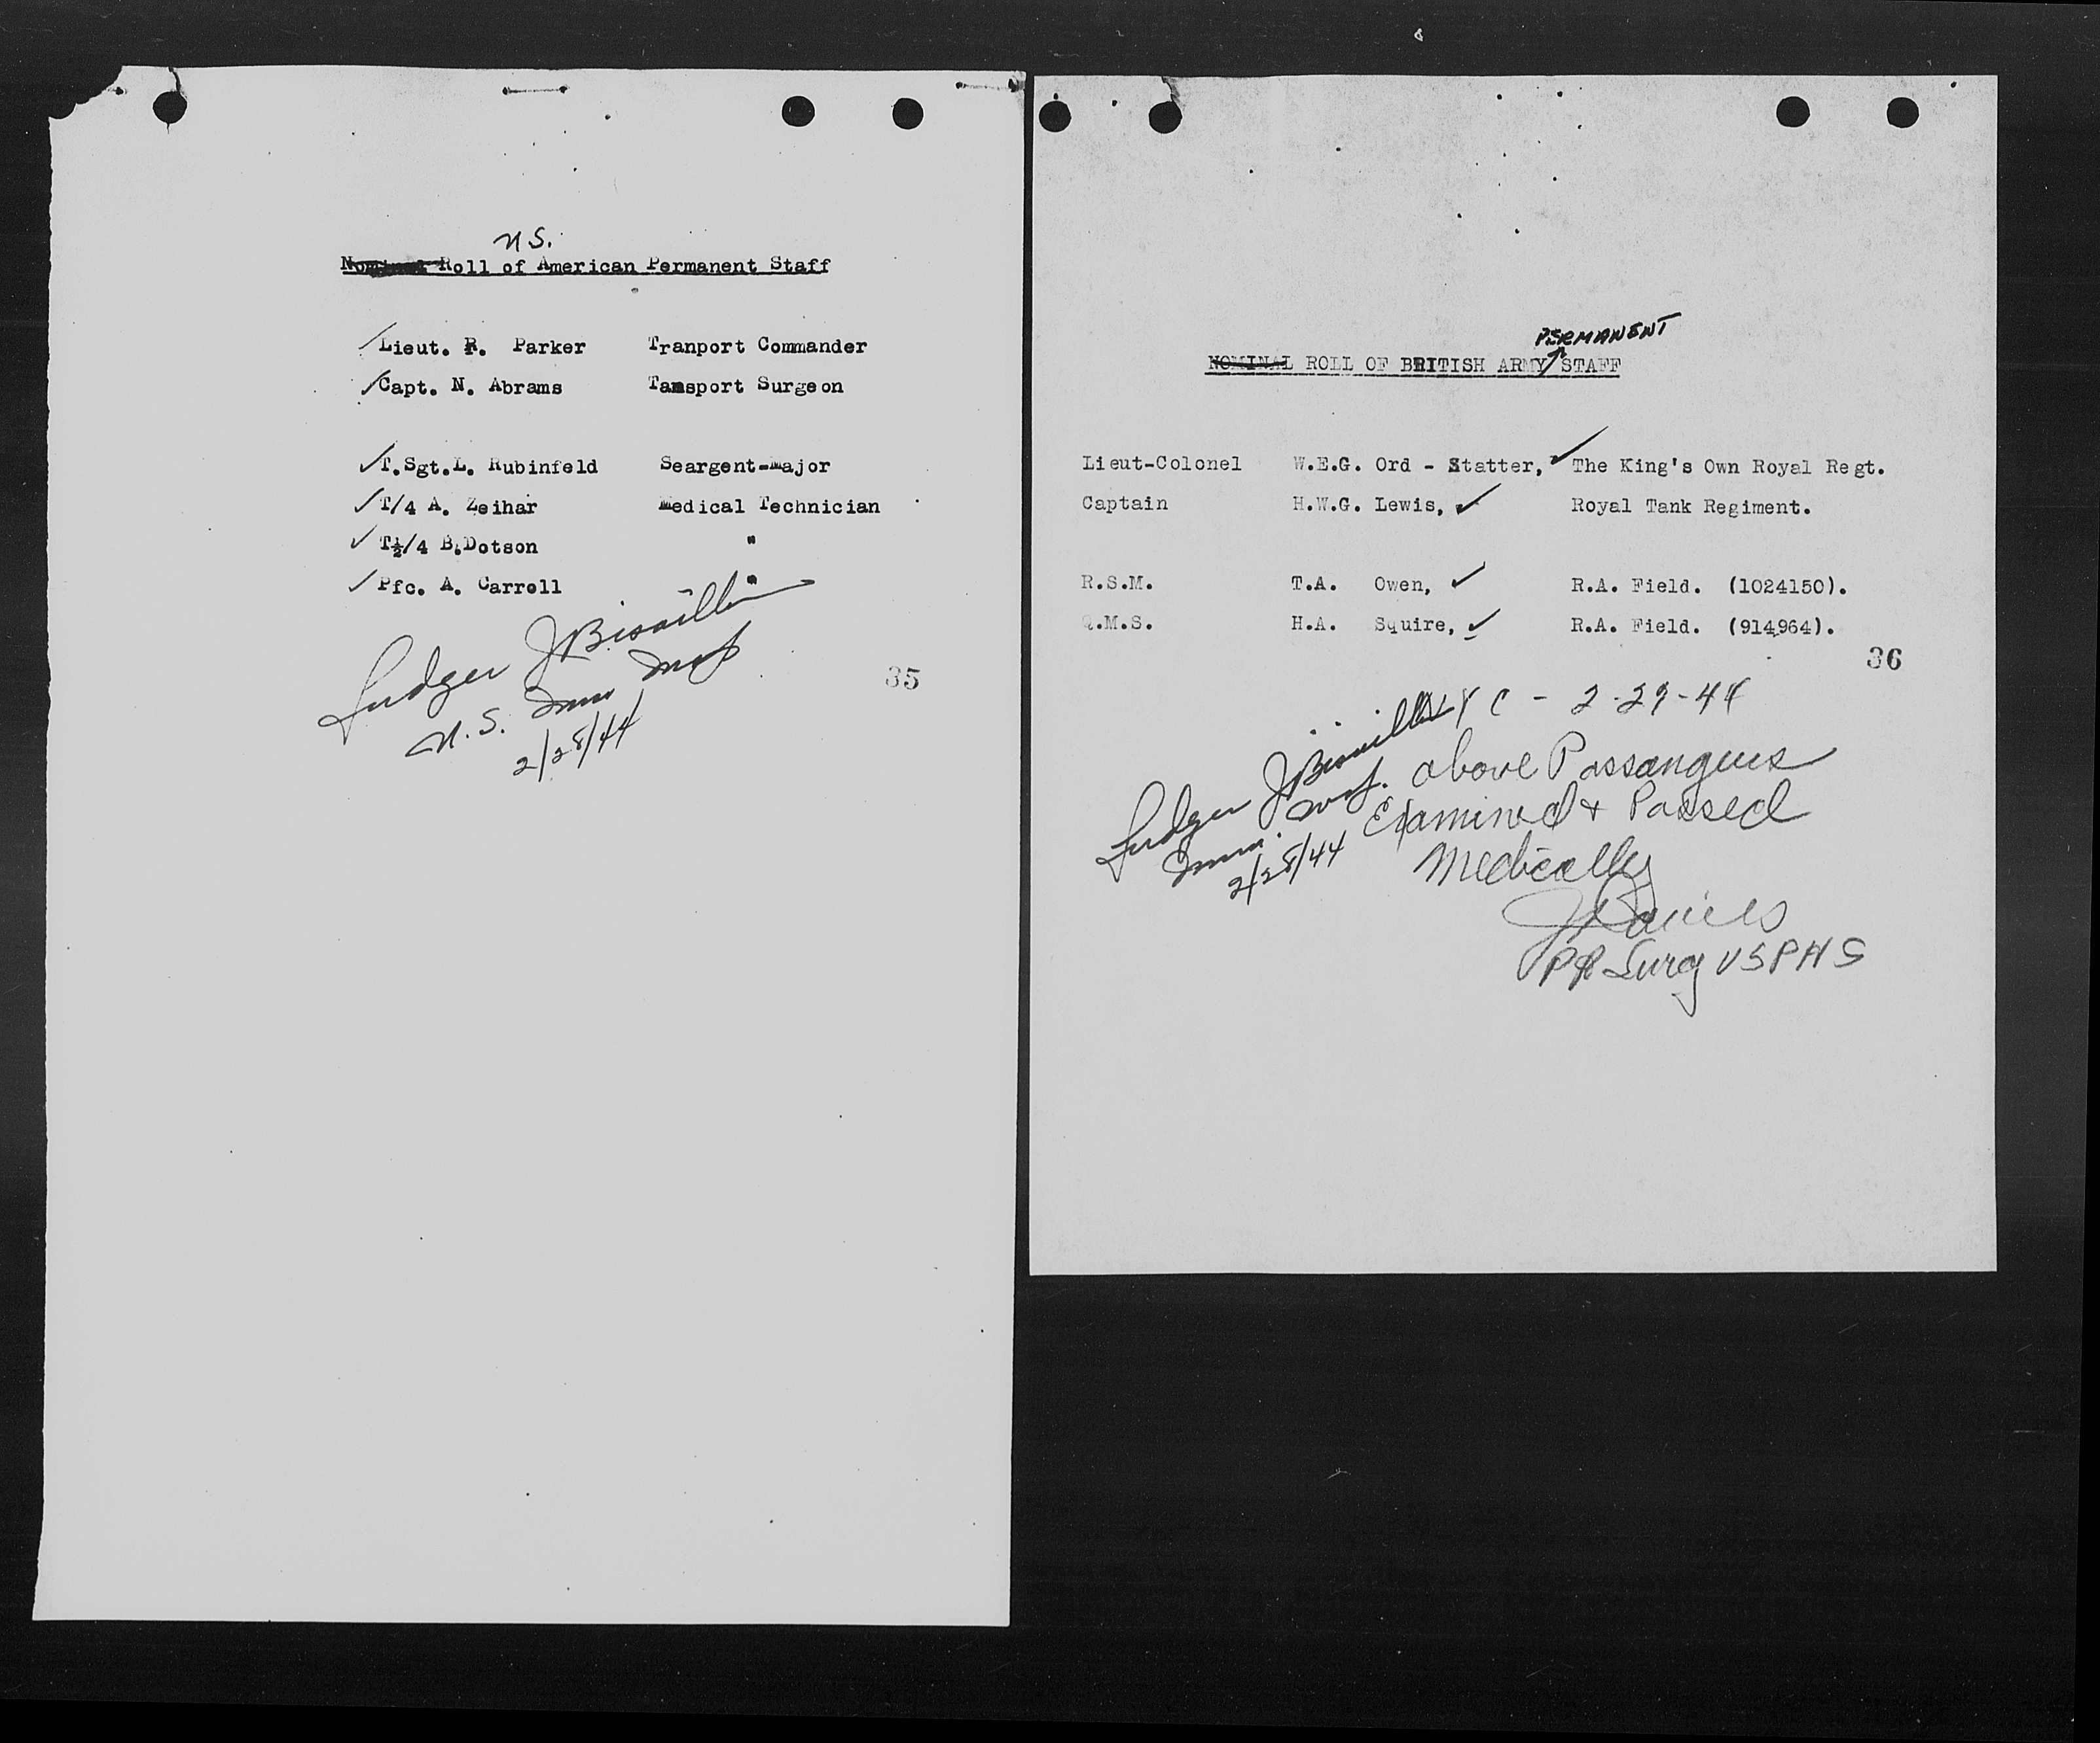 U.S.
Nominal Roll of American Permanent Staff
Lieut. R. Parker Tranport Commander
Capt. N. Abrams Tamsport Surgeon
T.Sgt.L. Rubinfeld Seargent-Major
T/4 A. Zeihar Medical Technician
T½/4 B.Dotson "
Pfc. A. Carroll "
Ludger J Bisaillon
U.S. Imm Insp
2/28/44
35
PERMANENT
NOMINAL ROLL OF BRITISH ARMY STAFF
Lieut-Colonel W.E.G. Ord - Statter, The King's Own Royal Regt.
Captain H.W.G. Lewis, Royal Tank Regiment.
R.S.M. T.A. Owen, R.A. Field. (1024150).
Q.M.S. H.A. Squire, R.A. Field. (914964).
36
Ludger J Bisaillon
Imm. Insp.
2/28/44
NYC - 2-29-44
above Passangers
Examined + Passed
Medically
Surg USPHS